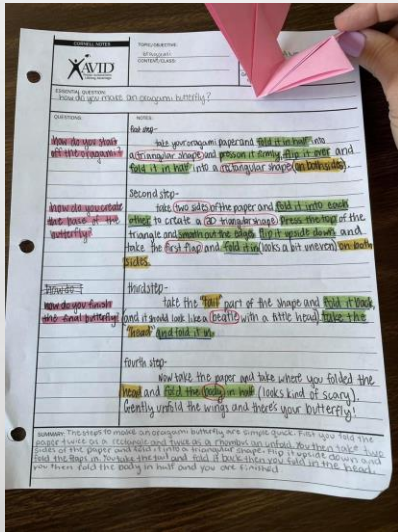 CORNELL NOTES
TOPIC/OBJECTIVE:
AVID
CONTENT/CLASS:
ESSENTIAL QUESTION:
How do you make an oragami butterfly?
QUESTIONS:
NOTES:
first step-
how do you start
off the oragami?
take your oragami paper and fold it in half into
a triangular shape and press on it firmly, flip it over and
fold it in half into a rectangular shape (on both sides).
second step-
how do you create
the base of the
butterfly?
take two sides of the paper and fold it into each
other to create a 3D triangular shape. Press the top of the
triangle and smooth out the edges, flip it upside down and
take the first flap and fold it in (looks a bit uneven) on both
sides.
how do you finish
the final butterfly?
third step-
take the "tail" part of the shape and fold it back,
and it should look like a beatle with a little head, take the
"head" and fold it in.
fourth step-
now take the paper and take where you folded the
head and fold the body in half (looks kind of scary).
Gently unfold the wings and there's your butterfly!
SUMMARY: The steps to make an oragami butterfly are simple quick. First you fold the
paper twice as a rectangle and twice as a rhombus an unfold. You then take two
sides of the paper and fold it into a triangular shape. Flip it upside down and
fold the flaps in. You take the tail and fold it back then you fold in the head.
you then fold the body in half and you are finished.